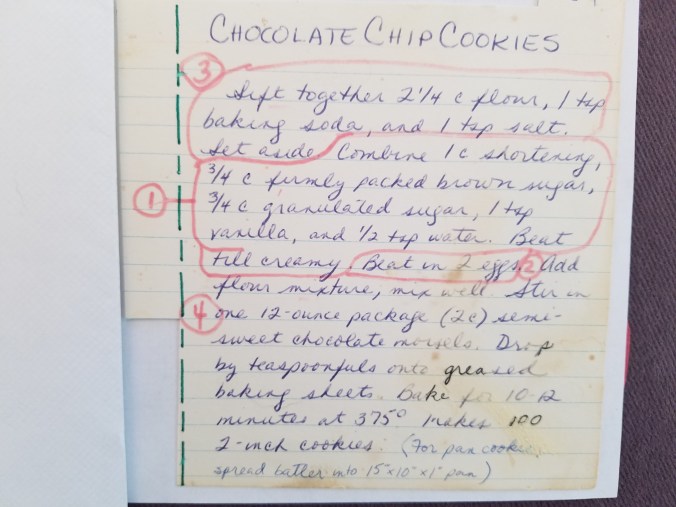 CHOCOLATE CHIP COOKIES
3
Sift together 2 1/4 c flour, 1 tsp
baking soda, and 1 tsp salt.
Set aside. Combine 1 c shortening,
3/4 c firmly packed brown sugar,
1
3/4 c granulated sugar, 1 tsp
vanilla, and 1/2 tsp water. Beat
till creamy. Beat in 2 eggs. 2 Add
flour mixture, mix well. Stir in
4 one 12-ounce package (2c) semi-
sweet chocolate morsels. Drop
by teaspoonfuls onto greased
baking sheets. Bake for 10-12
minutes at 375° Makes 100
2-inch cookies. (For pan cookie,
spread batter into 15"x10"x1" pan)